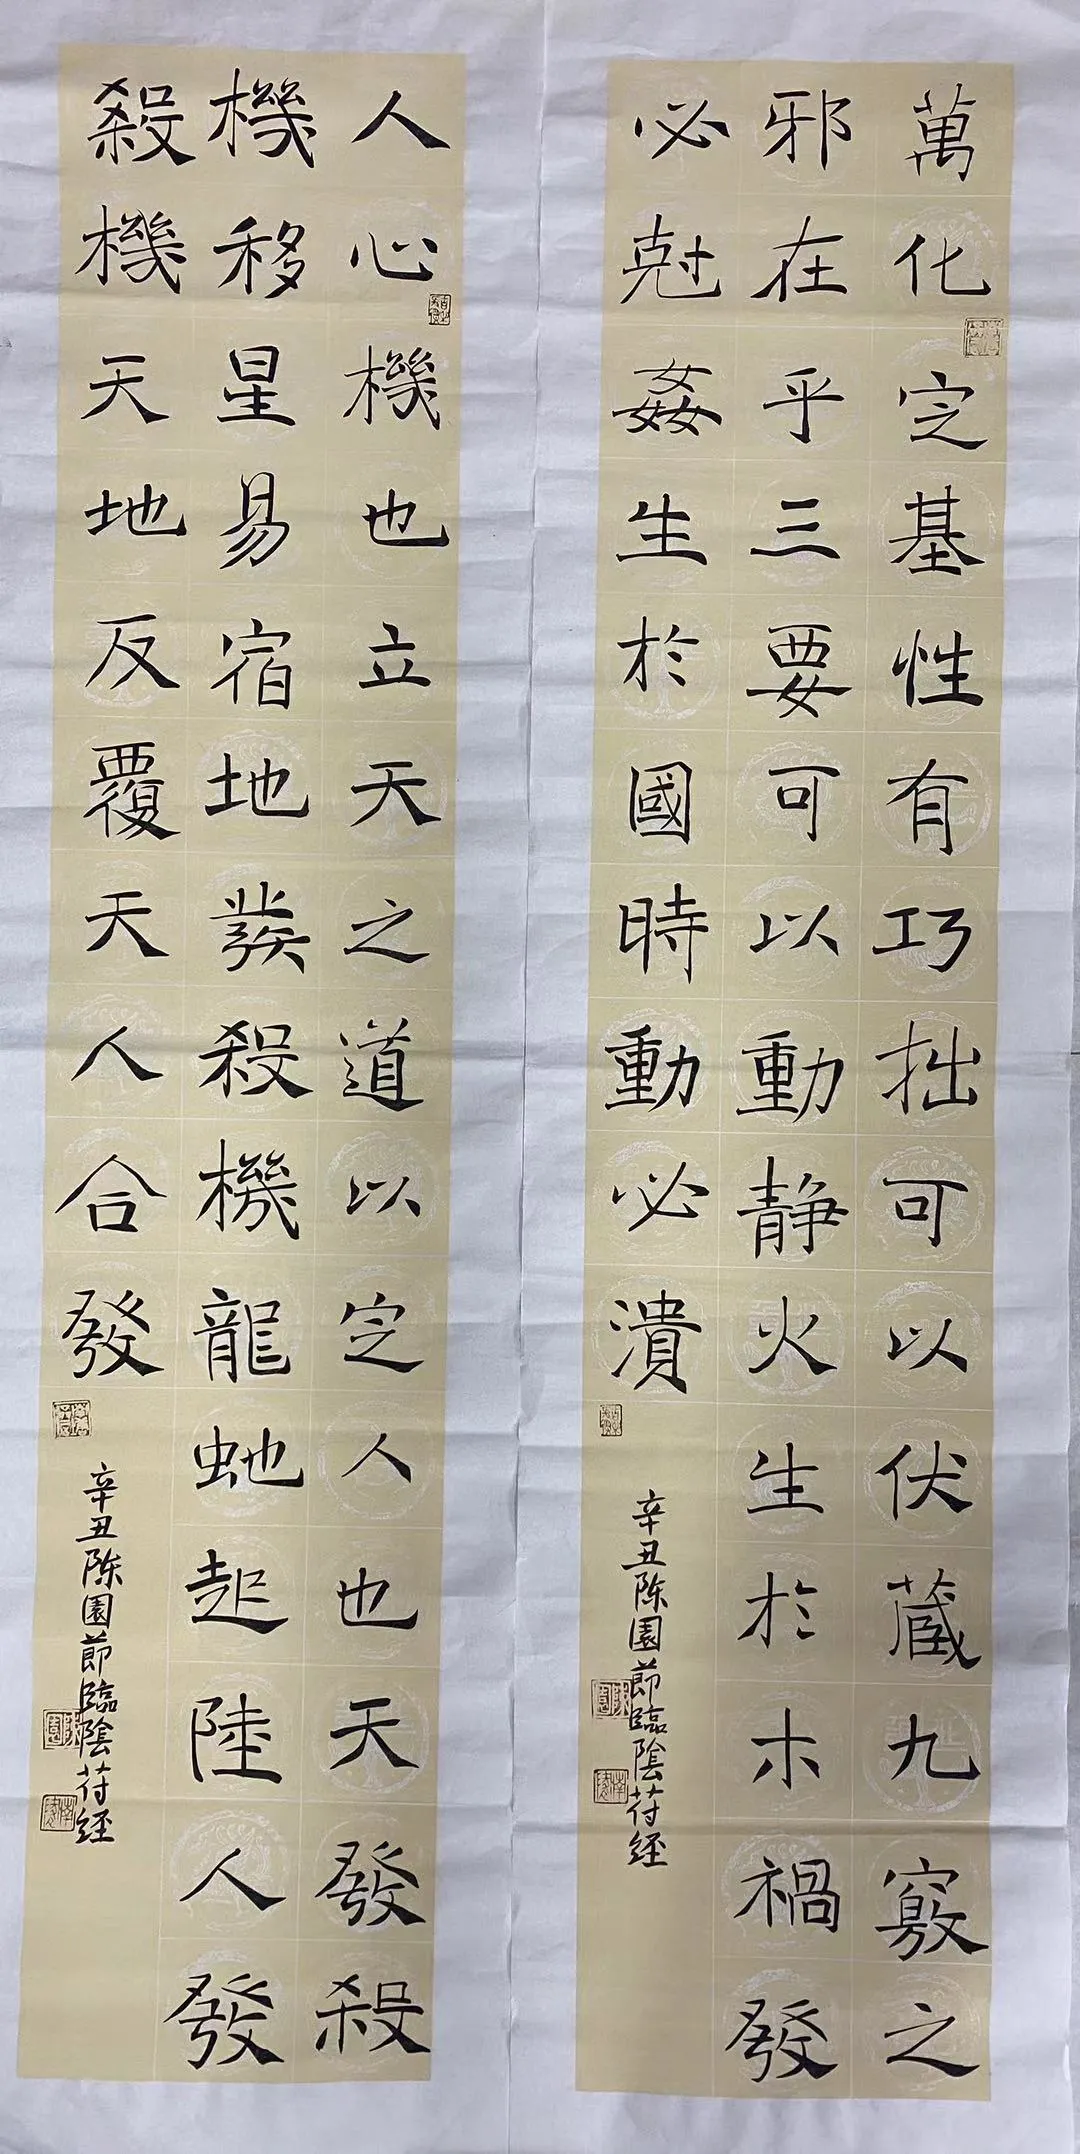 人心機也立天之道以定人也天發殺
機移星易宿地發殺機龍虵起陸人發
殺機天地反覆天人合發
辛丑陈園節臨陰符經
萬化定基性有巧拙可以伏藏九竅之
邪在乎三要可以動静火生於木禍發
必尅姦生於國時動必潰
辛丑陈園節臨陰符經